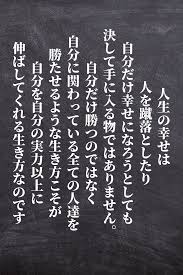 人生の幸せは
人を蹴落としたり
自分だけ幸せになろうとしても
決して手に入る物ではありません。
自分だけ勝つのではなく
自分に関わっている全ての人達を
勝たせるような生き方こそが
自分を自分の実力以上に
伸ばしてくれる生き方なのです